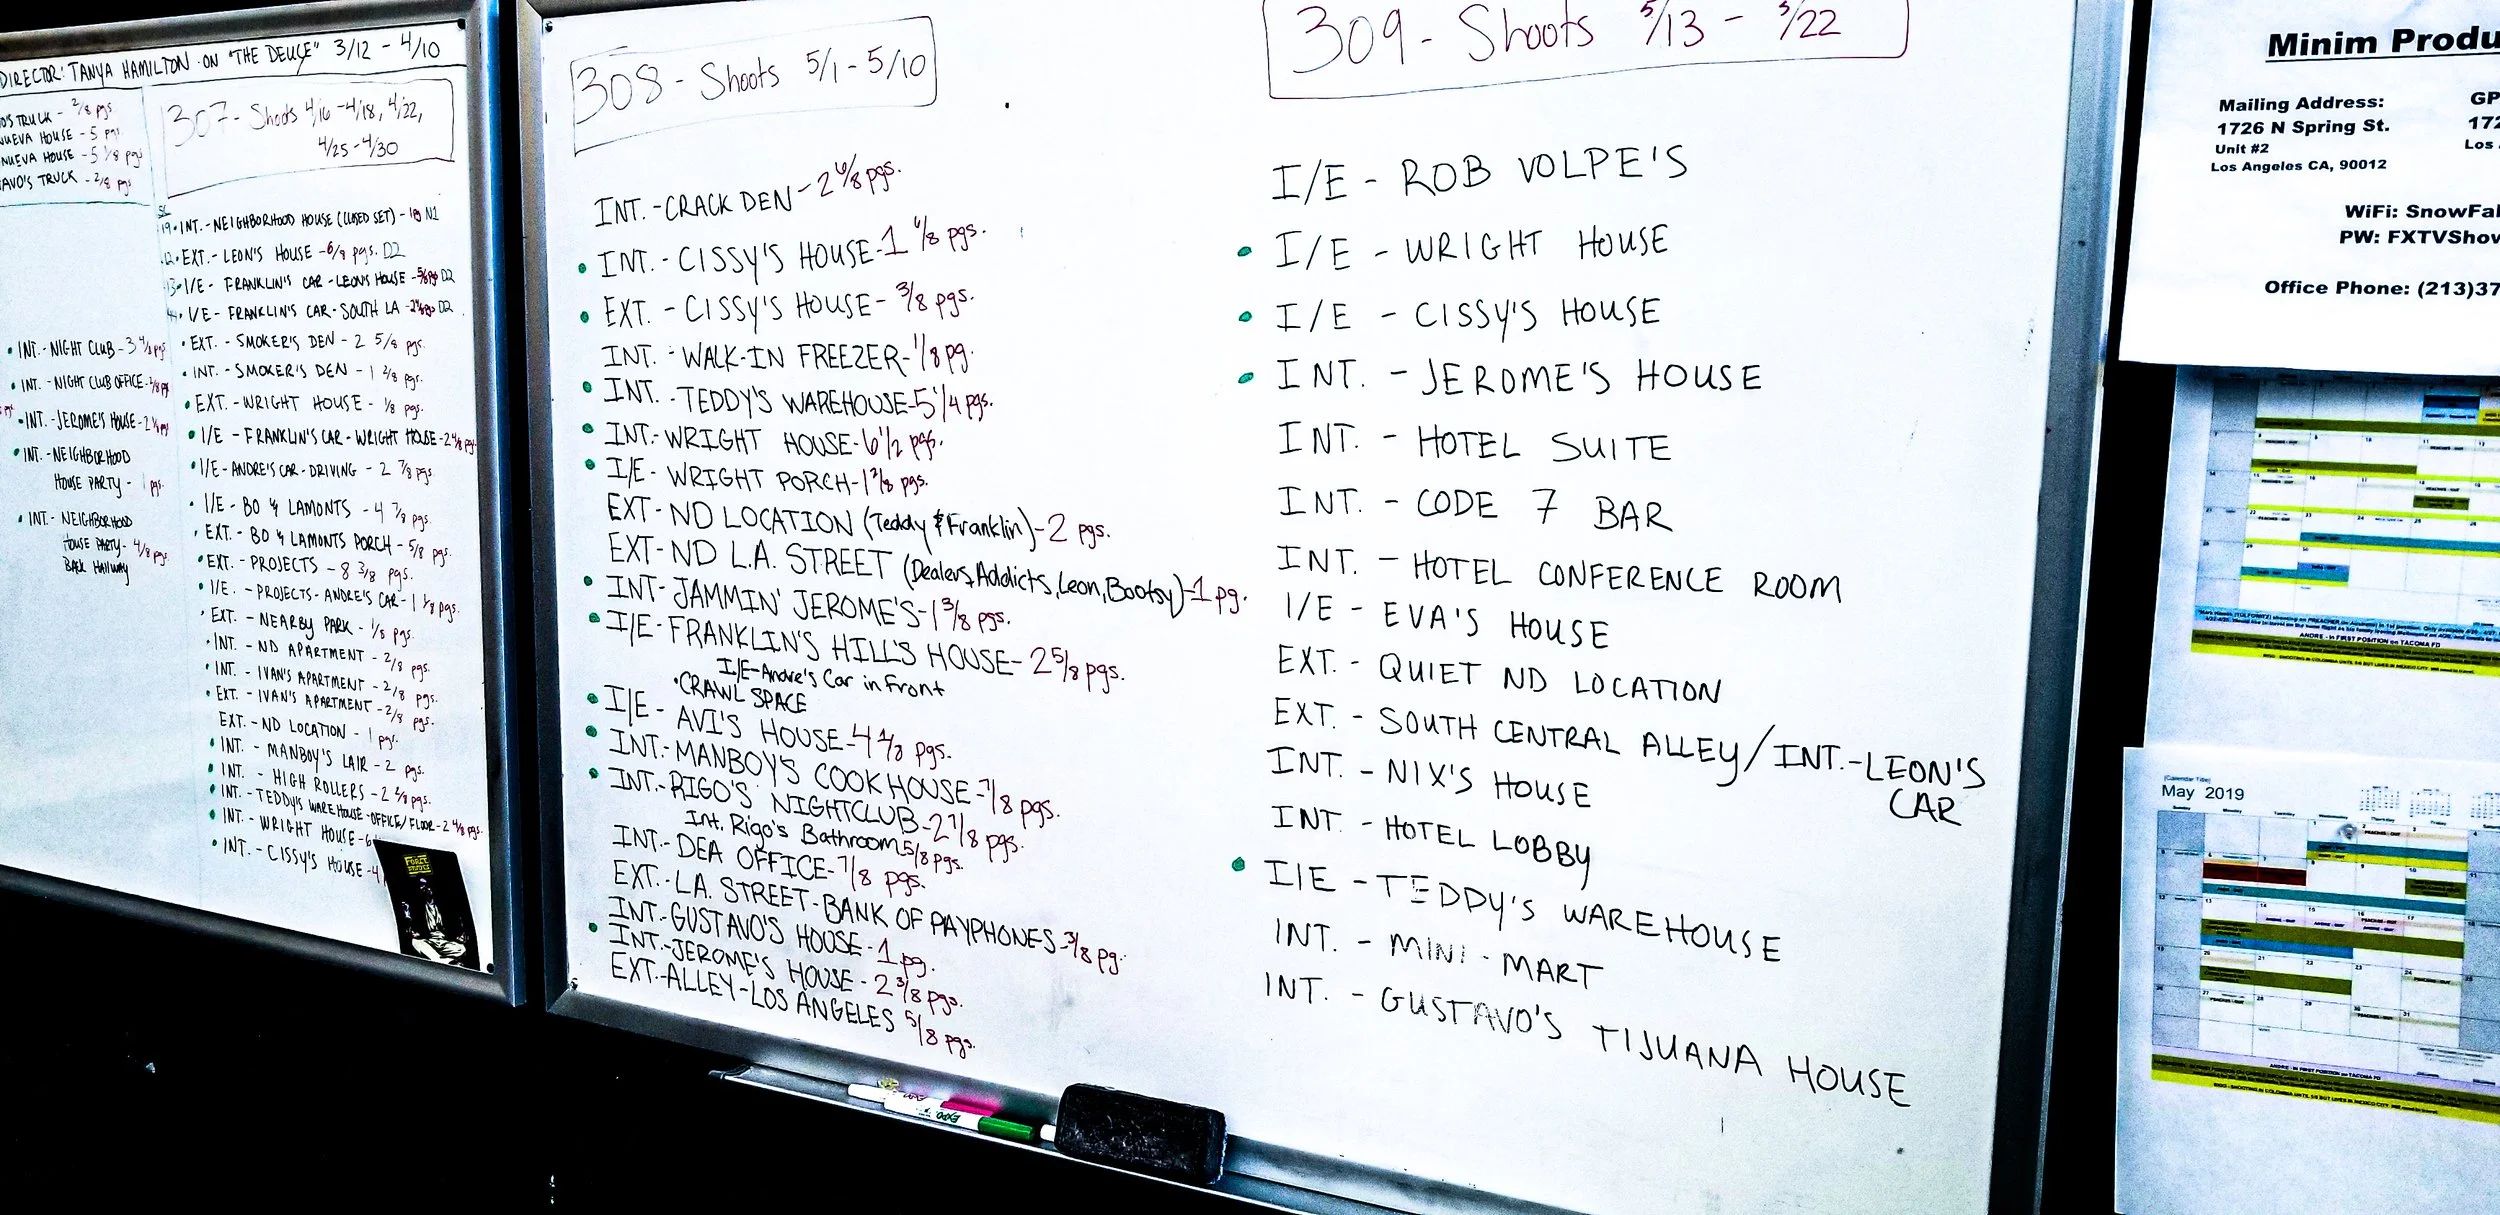 DIRECTOR: TANYA HAMILTON ON "THE DEUCE" 3/12 - 4/10
TRUCK - 2/8 pgs.
NUEVA HOUSE - 5 pgs
NUEVA HOUSE - 5 1/8 pgs
AVO'S TRUCK - 2/8 pgs
INT. - NIGHT CLUB - 3
INT. - NIGHT CLUB OFFICE -
INT. - JEROME'S HOUSE - 2
INT. - NEIGHBORHOOD
HOUSE PARTY - 1 pgs.
INT. - NEIGHBORHOOD
HOUSE PARTY - 4/8 pgs.
BACK HALLWAY
307 - Shoots 4/16 - 4/18, 4/22,
4/25 - 4/30
INT. - NEIGHBORHOOD HOUSE (CLOSED SET) - N1
EXT. - LEON'S HOUSE - 6/8 pgs. D2
I/E - FRANKLIN'S CAR - LEON'S HOUSE - 5/8 pgs D2
I/E - FRANKLIN'S CAR - SOUTH LA - D2
EXT. - SMOKER'S DEN - 2 5/8 pgs.
INT. - SMOKER'S DEN - 1 2/8 pgs.
EXT. - WRIGHT HOUSE - 1/8 pgs.
I/E - FRANKLIN'S CAR - WRIGHT HOUSE - 2
I/E - ANDRE'S CAR - DRIVING - 2 7/8 pgs.
I/E - BO & LAMONTS - 4 7/8 pgs.
EXT. - BO & LAMONTS PORCH - 5/8 pgs.
EXT. - PROJECTS - 8 3/8 pgs.
I/E. - PROJECTS - ANDRE'S CAR - 1 1/8 pgs.
EXT. - NEARBY PARK - 1/8 pgs.
INT. - ND APARTMENT - 2/8 pgs.
INT. - IVAN'S APARTMENT - 2/8 pgs.
EXT. - IVAN'S APARTMENT - 2/8 pgs.
EXT. - ND LOCATION - 1 pgs.
INT. - MANBOY'S LAIR - 2 pgs.
INT. - HIGH ROLLERS - 2 2/8 pgs.
INT. - TEDDY'S WAREHOUSE - OFFICE/FLOOR - 2 4/8 pgs.
INT. - WRIGHT HOUSE - 6
INT. - CISSY'S HOUSE - 4
308 - Shoots 5/1 - 5/10
INT. - CRACK DEN - 2 6/8 pgs.
INT. - CISSY'S HOUSE - 1 6/8 pgs.
EXT. - CISSY'S HOUSE - 3/8 pgs.
INT. - WALK-IN FREEZER - 1/8 pg.
INT. - TEDDY'S WAREHOUSE - 5 1/4 pgs.
INT. - WRIGHT HOUSE - 6 1/2 pgs.
I/E - WRIGHT PORCH - 1 7/8 pgs.
EXT - ND LOCATION (Teddy & Franklin) - 2 pgs.
EXT - ND L.A. STREET (Dealers, Addicts, Leon, Bootsy) - 1 pg.
INT - JAMMIN' JEROME'S - 1 3/8 pgs.
I/E - FRANKLIN'S HILL'S HOUSE - 2 5/8 pgs.
I/E - Andre's Car in Front
• CRAWL SPACE
I/E - AVI'S HOUSE - 4 1/8 pgs.
INT. - MANBOY'S COOKHOUSE - 7/8 pgs.
INT. - RIGO'S NIGHTCLUB - 2 7/8 pgs.
Int. Rigo's Bathroom 5/8 pgs.
INT. - DEA OFFICE - 7/8 pgs.
EXT. - L.A. STREET - BANK OF PAYPHONES - 3/8 pg.
INT. - GUSTAVO'S HOUSE - 1 pg.
INT. - JEROME'S HOUSE - 2 3/8 pgs.
EXT. - ALLEY - LOS ANGELES 5/8 pgs.
309 - Shoots 5/13 - 5/22
I/E - ROB VOLPE'S
I/E - WRIGHT HOUSE
I/E - CISSY'S HOUSE
INT. - JEROME'S HOUSE
INT. - HOTEL SUITE
INT. - CODE 7 BAR
INT. - HOTEL CONFERENCE ROOM
I/E - EVA'S HOUSE
EXT. - QUIET ND LOCATION
EXT. - SOUTH CENTRAL ALLEY/INT. - LEON'S
CAR
INT. - NIX'S HOUSE
INT. - HOTEL LOBBY
I/E - TEDDY'S WAREHOUSE
INT. - MINI-MART
INT. - GUSTAVO'S TIJUANA HOUSE
EXPO
Minim Produ
Mailing Address:
1726 N Spring St.
Unit #2
Los Angeles CA, 90012
GP
172
Los
WiFi: SnowFal
PW: FXTVShow
Office Phone: (213)37
ANDRE - in FIRST POSITION on TACOMA FD
May 2019
ANDRE - in FIRST POSITION on TACOMA FD